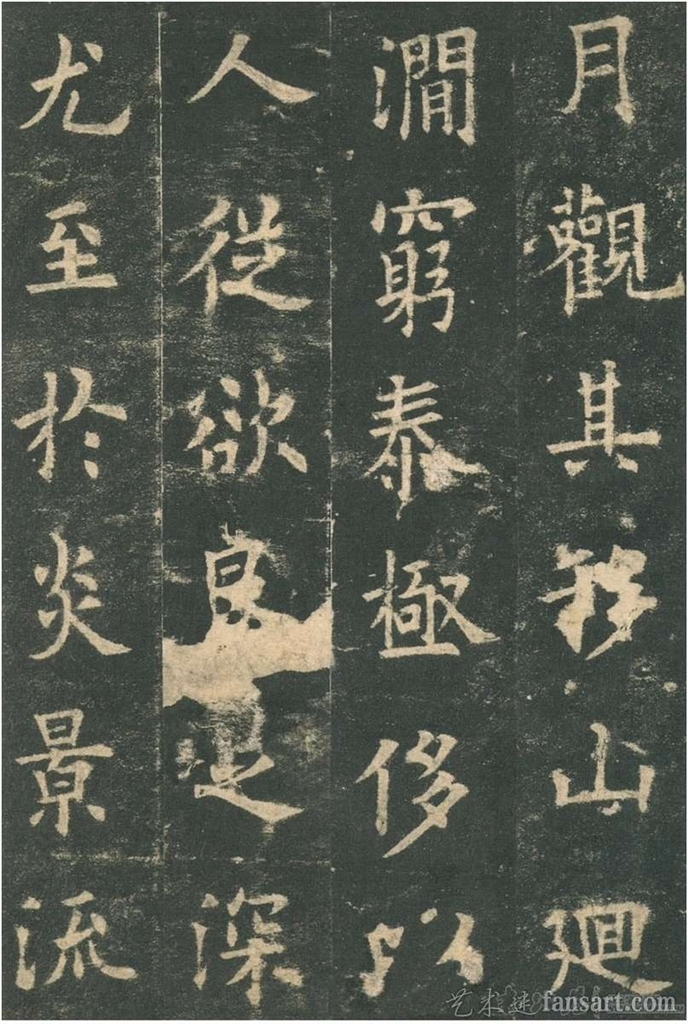 月觀其移山廻
澗窮泰極侈以
人從欲良之深
尤至於炎景流
艺术迷fansart.com